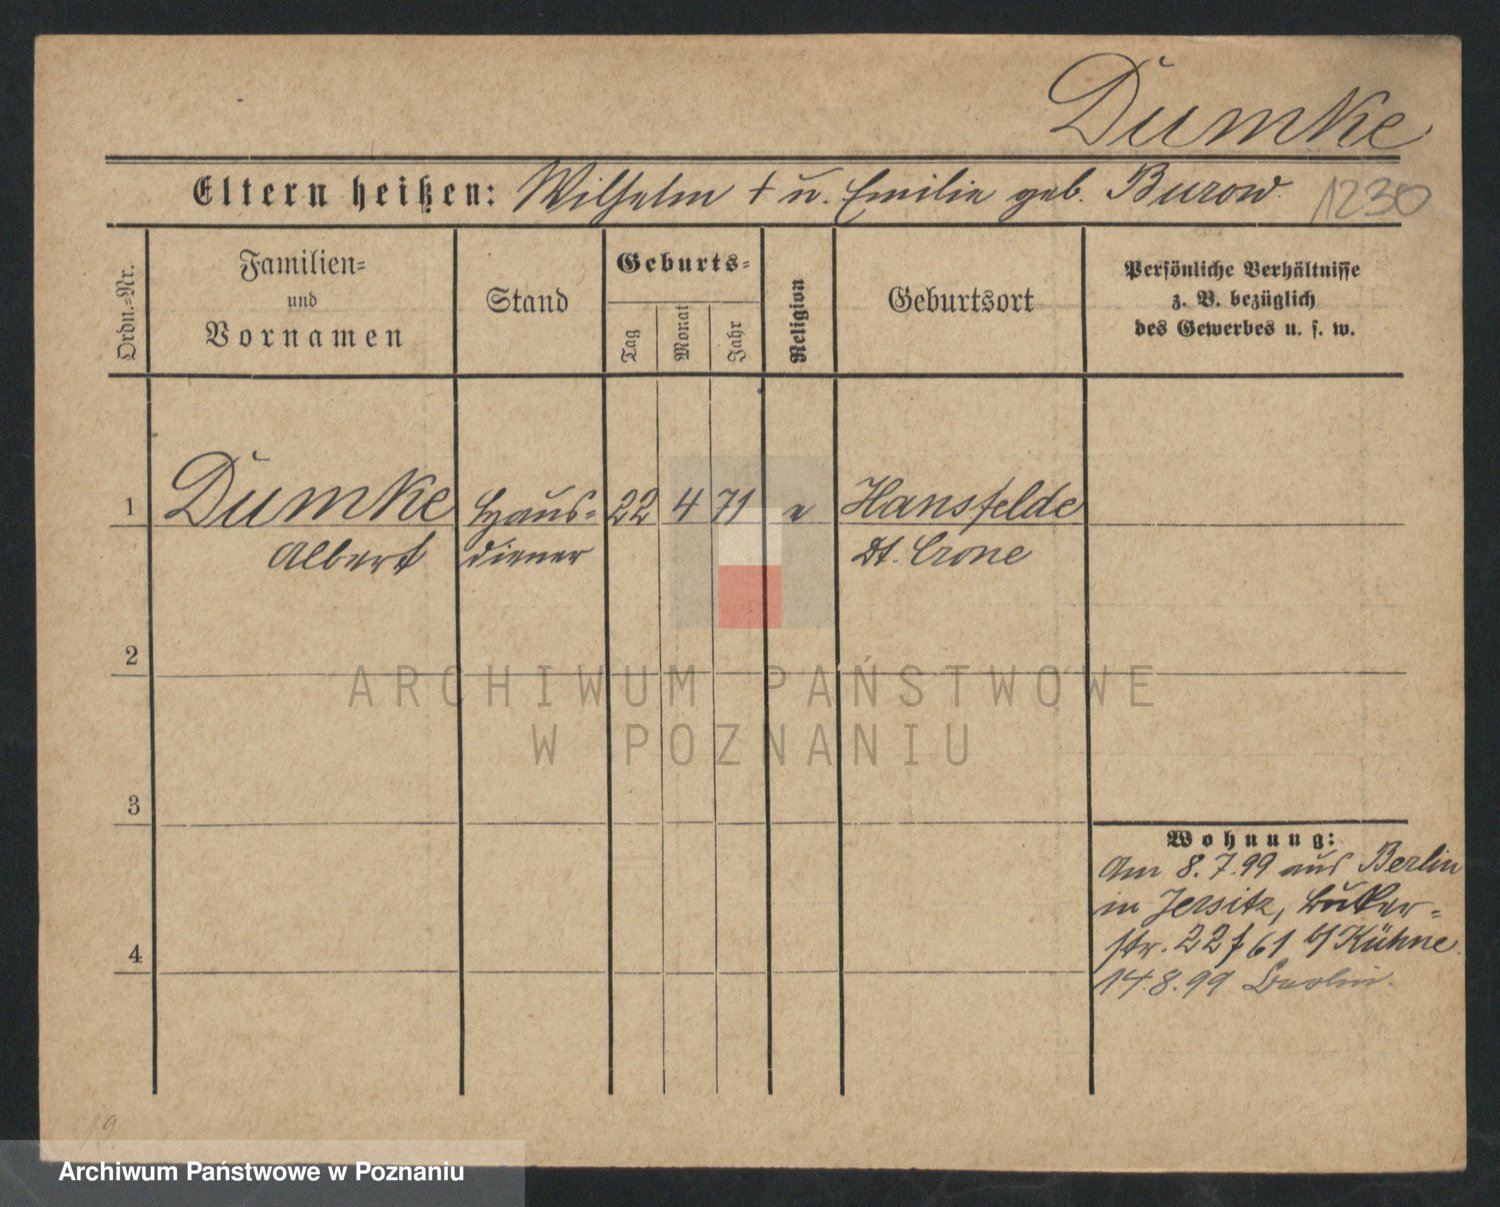 Dumke
Eltern heißen: Wilhelm † u. Emilie geb. Burow.
1230
Ordn.=Nr.
Familien=
und
Vornamen
Stand
Geburts=
Tag
Monat
Jahr
Religion
Geburtsort
Persönliche Verhältnisse
z. B. bezüglich
des Gewerbes u. s. w.
1 Dumke Haus= 22 4 71 e Hansfelde
Albert diener Dt. Crone
2
ARCHIWUM PAŃSTWOWE
W POZNANIU
3
Wohnung:
Am 8.7.99 aus Berlin
in Jersitz, Buker=
str. 22 f 61 b/ Kühne.
4
14.8.99 Berlin.
19
Archiwum Państwowe w Poznaniu